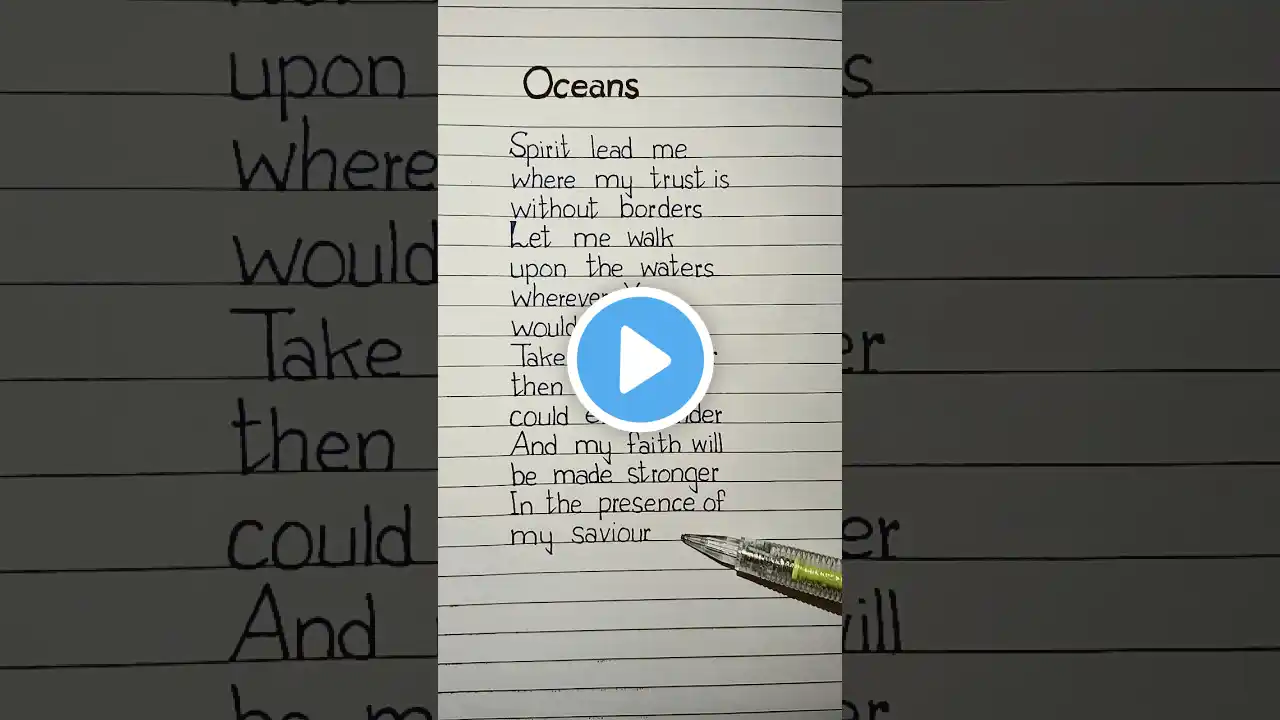 Oceans
Spirit lead me
where my trust is
without borders
Let me walk
upon the waters
wherever
would
Take
then
could
And my faith will
be made stronger
In the presence of
my saviour